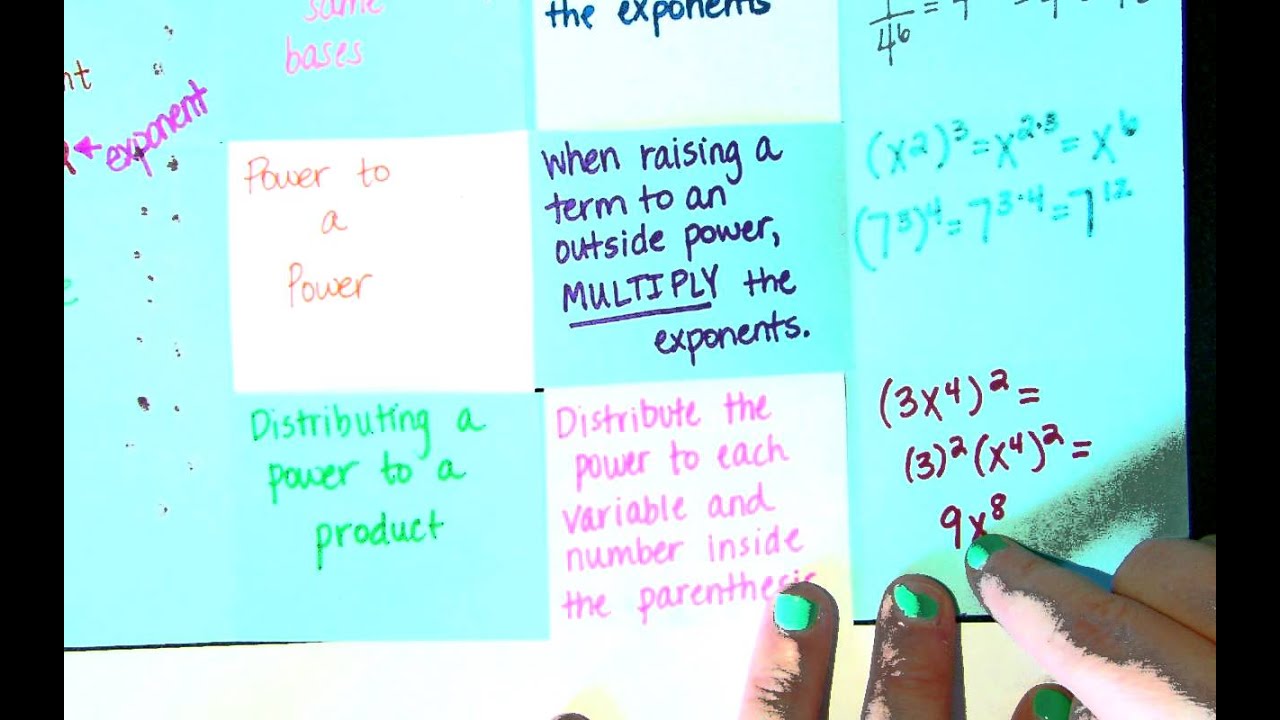 same
bases
the exponents
exponent
Power to
a
Power
When raising a
term to an
outside power,
MULTIPLY the
exponents.
(x2)³=x²·³=x⁶
(7³)⁴=7³·⁴=7¹²
Distributing a
power to a
product
Distribute the
power to each
variable and
number inside
the parenthesis
(3x⁴)²=
(3)²(x⁴)²=
9x⁸